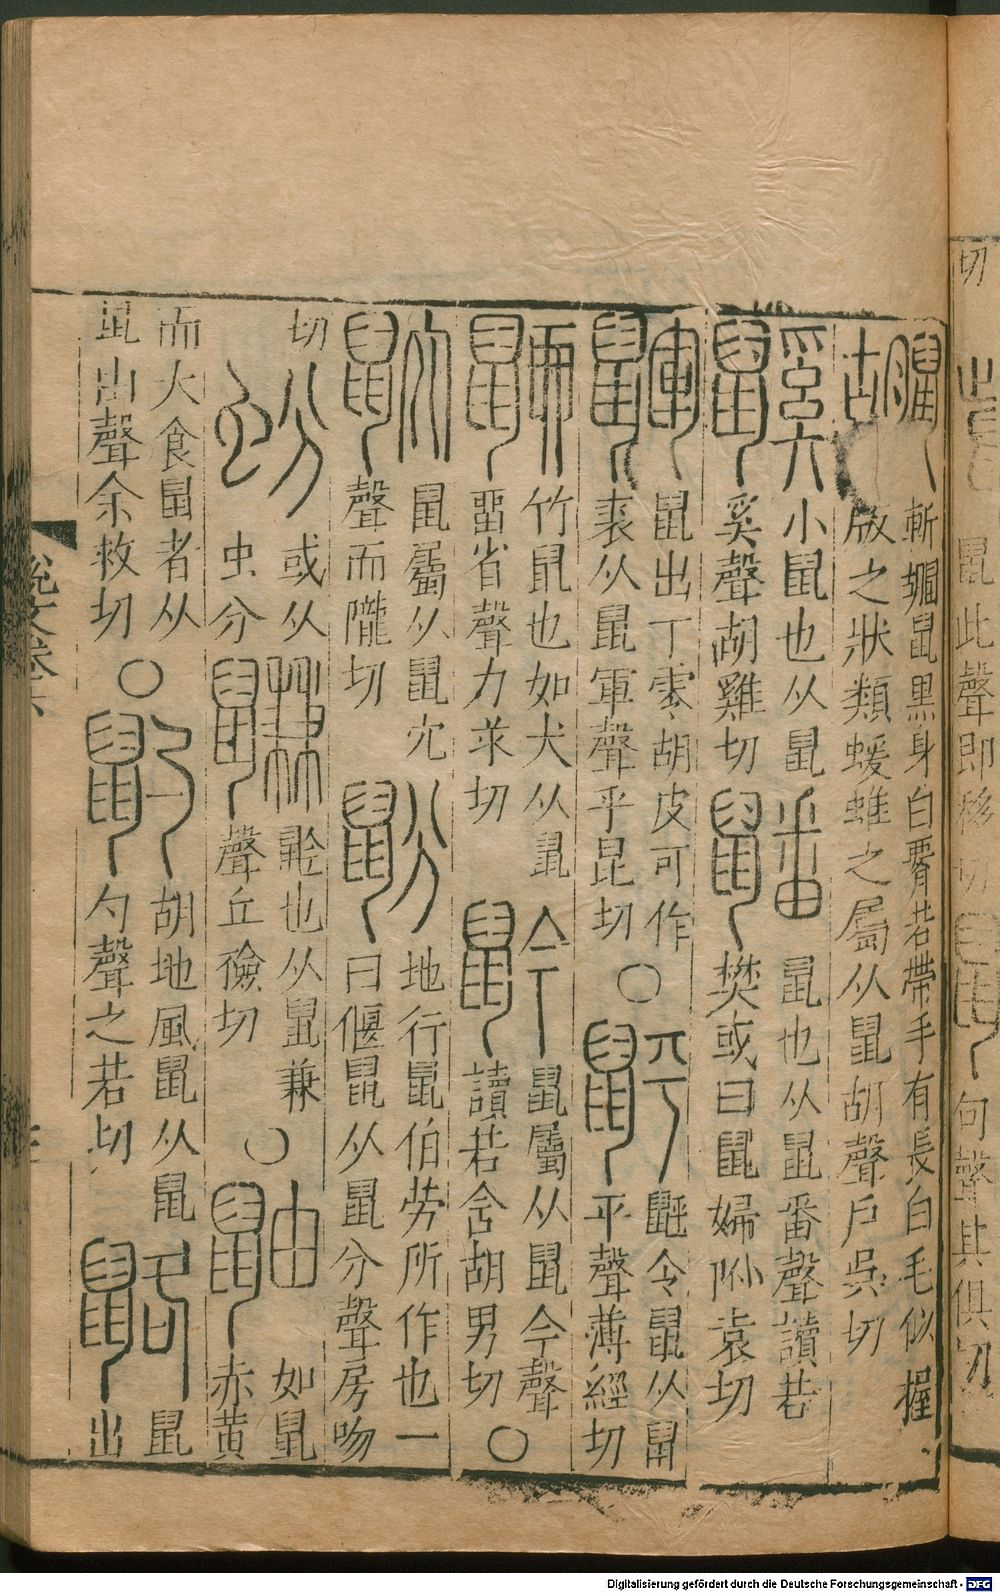 切 鼠此聲即移切 句聲其俱切
斬𪕰鼠黑身白腰若帶手有長白毛似握
版之狀類蝯蜼之屬从鼠胡聲戶吳切
鼷 小鼠也从鼠
奚聲胡雞切
鼠也从鼠番聲讀若
樊或曰鼠婦附袁切
鼲 鼠出丁零胡皮可作
裘从鼠軍聲乎昆切 ○
𪕒 𪕒令鼠从鼠
平聲薄經切
䶉 竹鼠也如犬从鼠
畱省聲力求切
䶃 鼠屬从鼠今聲
讀若含胡男切 ○
鼠屬从鼠宂
聲而隴切
鼢 地行鼠伯勞所作也一
曰偃鼠从鼠分聲房吻
切
蚡 或从
虫分
鼸 䶃也从鼠兼
聲丘檢切 ○
鼬 如鼠
赤黃
而大食鼠者从
鼠由聲余救切 ○
胡地風鼠从鼠
勺聲之若切
鼠
出
説文卷